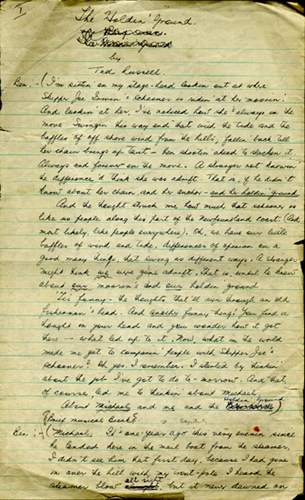 I
The 'Holdin' Ground.
by
Ted Russell
Ben:- (I'm sittin on my stage-head lookin out at where
Skipper Joe Irwin's schooner is ridin at her moorin's
And lookin at her, I've noticed how she's always on the
move. Swingin this way and that with the tide and the
baffles of off shore wind from the hills, fallin back till
her chain brings up taut & then shootin ahead to slacken it.
Always and forever on the move. A stranger not knowin
the difference'd think she was adrift. That is, if he didn't
know about her chain, and her anchor - and her holdin ground
And the thought struck me how much that schooner is
like us people along this part of the Newfoundland coast. (And
most likely, like people everywhere). Oh, we have our little
baffles of wind and tide, differences of opinion on a
good many things, that swing us different ways. A stranger
might think we were gone adrift, That is, unless he knew
about our moorin's and our holdin ground
'Tis funny - the thoughts that'll run through an old
fisherman's head. And another funny thing: You find a
thought in your head and you wonder how it got
there - what led up to it. Now, what in the world
made me get to comparin' people with Skipper Joe's
schooner? Oh yes. I remember. I started by thinkin
about the job I've got to do to-morrow. And that,
of course, led me to thinkin about Michael.
About Michael and me and the Holdin Ground
(Brief musical Break)
Ben:- (Michael. Is one year ago this very evenin since
he landed here in the mail boat from the steamer.
I didn't see him that first day, because I had gone
in over the hill with my
steamer blow all right but it never dawned on